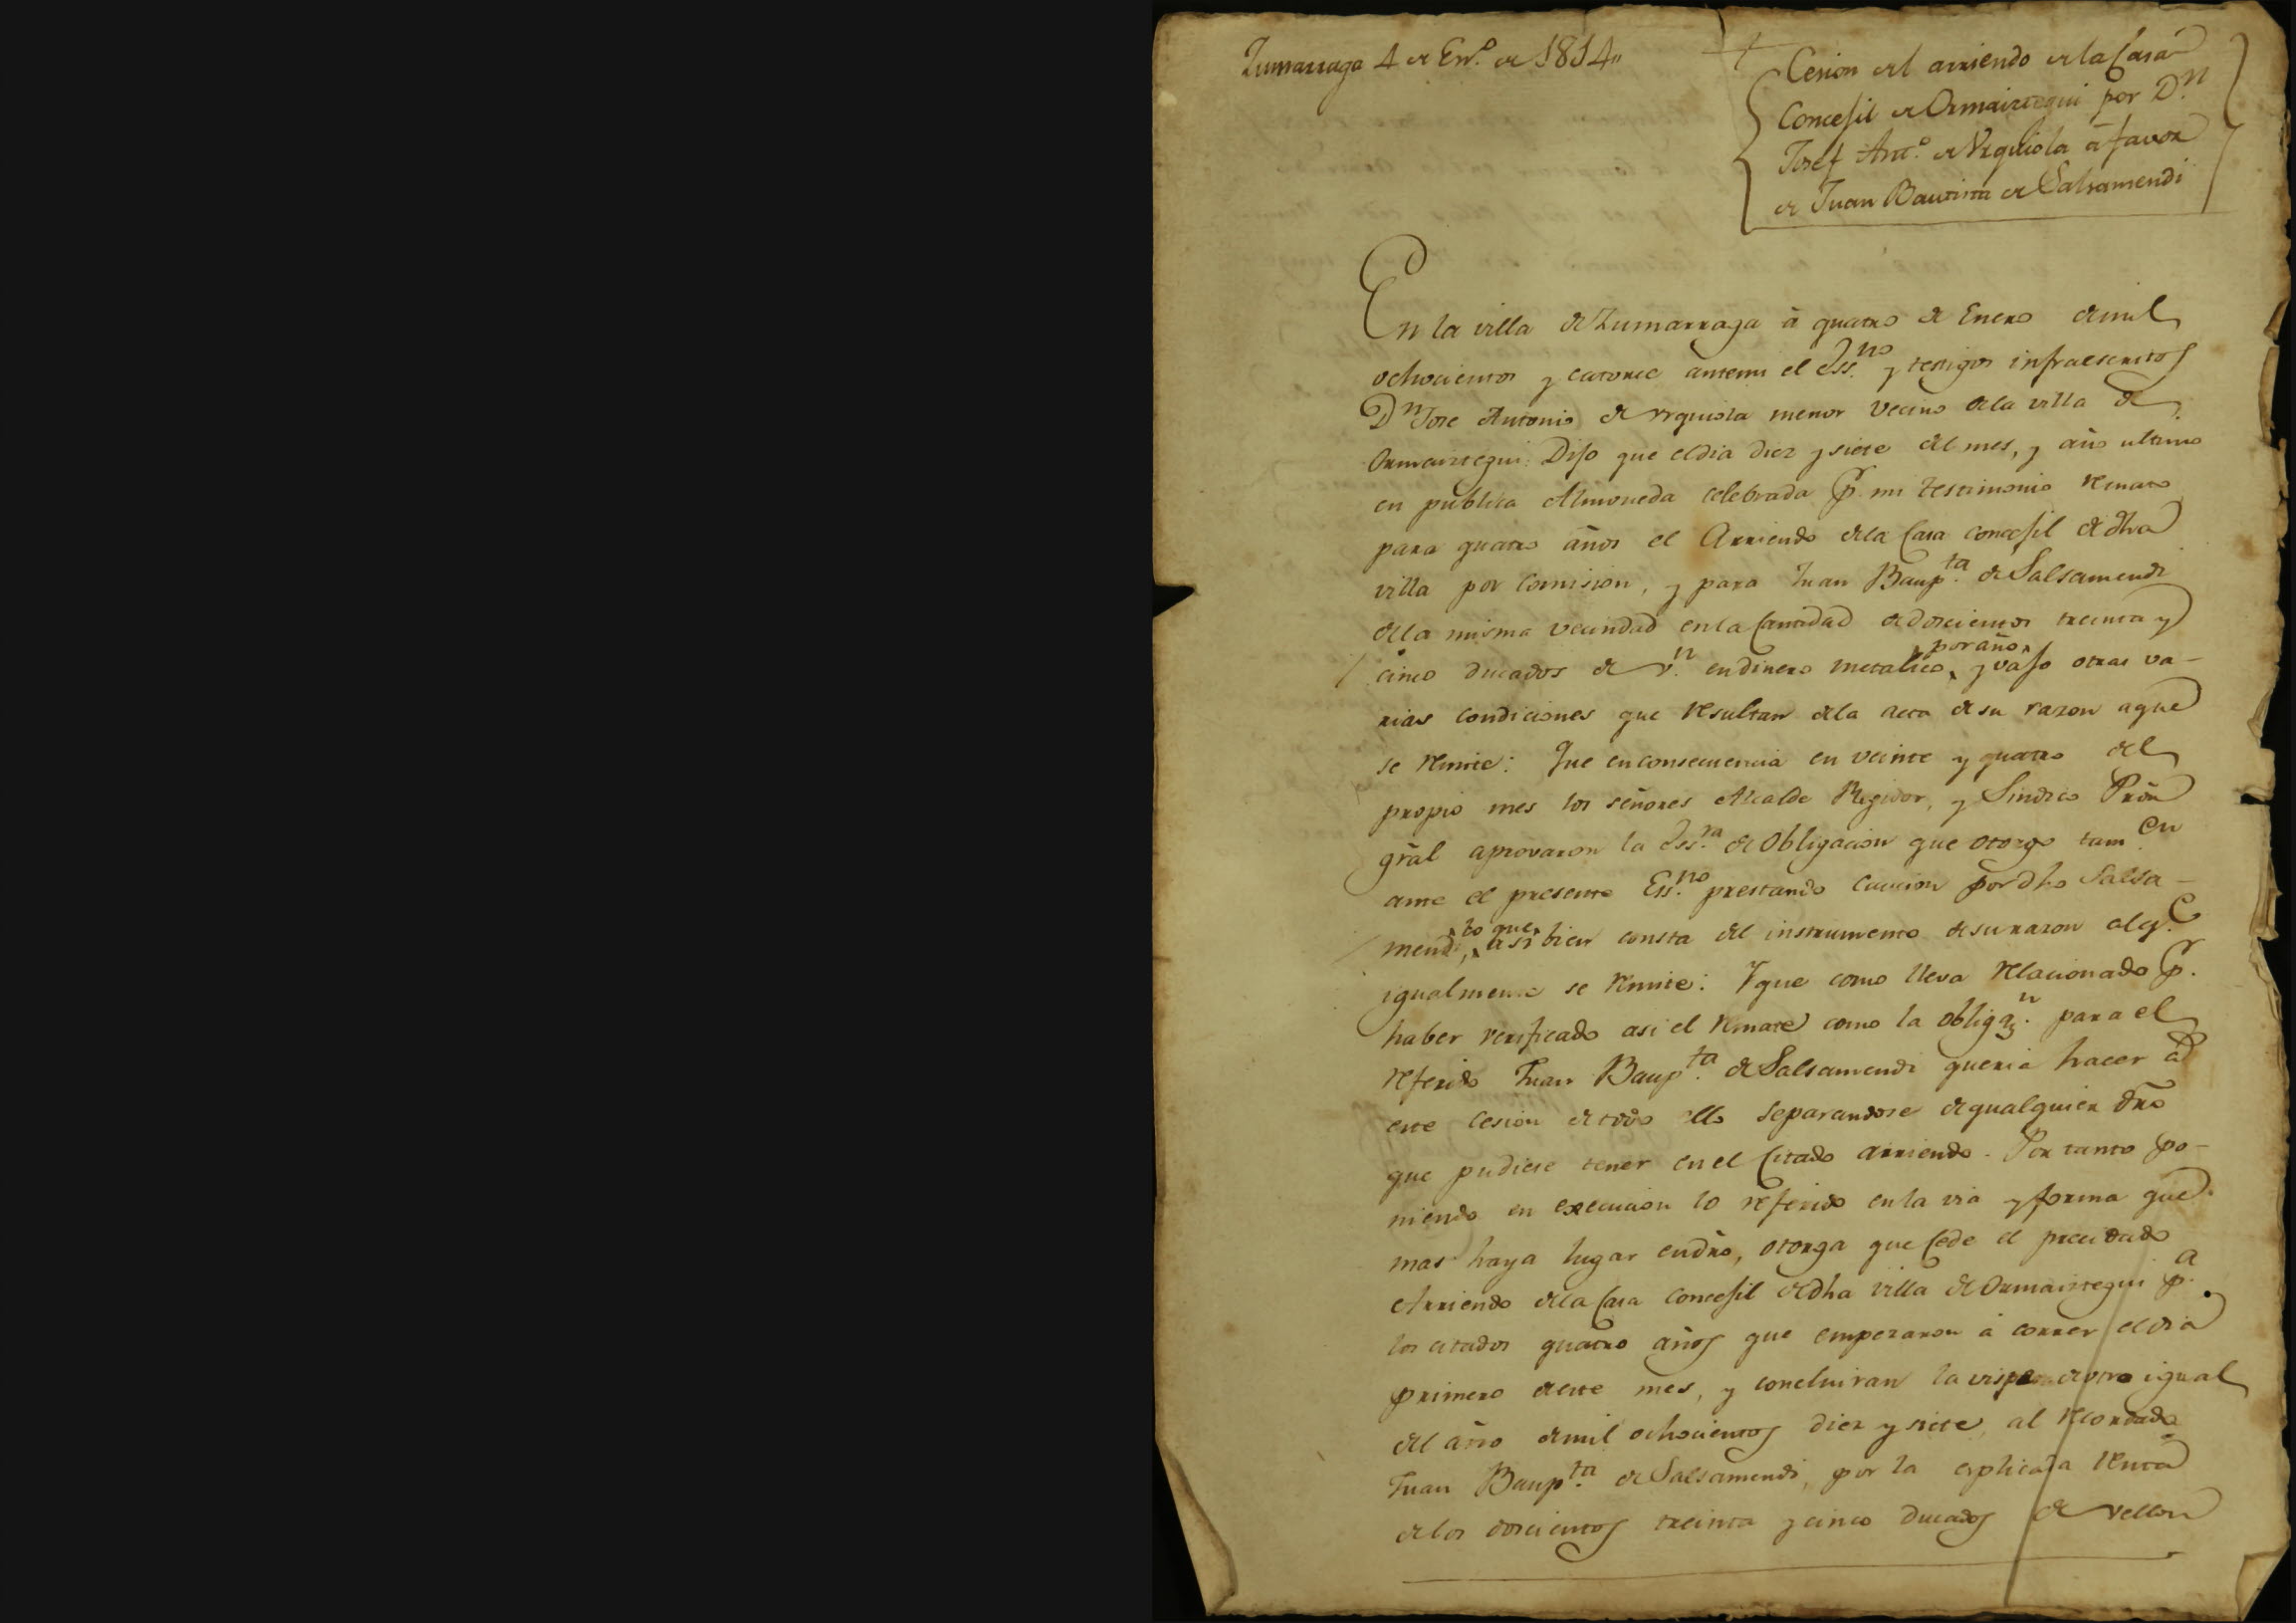 Zumarraga 4 de En.º de 1814,,
Cesion del arriendo de la Casa
Concejil de Ormaiztegui por D.n
Josef Ant.º de Vrquiola á favor
de Juan Bautista de Salsamendi
En la villa de Zumarraga á quatro de Enero de mil
ochocientos y catorce antemi el Ess.no y testigos infraescritos
Dn Jose Antonio de Vrquiola menor vecino de la villa de
Ormaiztegui: Dijo que el dia diez y siete del mes, y año ultimo
en publica Almoneda celebrada p.r mi testimonio remato
para quatro años el Arriendo de la Casa concejil de dha
villa por Comision, y para Juan Baup.ta de Salsamendi
de la misma vecindad en la Cantidad de doscientos treinta y
por año
cinco ducados de v.n en dinero metalico, y vajo otras va-
rias condiciones que resultan de la acta de su razon a que
se remite: Que en consecuencia en veinte y quatro del
propio mes los señores Alcalde Regidor, y Sindico Prõr
grãl aprovaron la Ess.ra de Obligacion que otorgo tam.en
ante el presente Ess.no prestando caucion por dho Salsa-
lo que
mendi, asi bien consta del instrumento de su razon al q.e
igualmente se remite: Y que como lleva relacionado p.r
haber verificado asi el remate como la obligaz.n para el
referido Juan Baup.ta de Salsamendi queria hacer á
este cesion de todo ello separandose de qualquier dro
que pudiese tener en el Citado arriendo. Por tanto po-
niendo en execucion lo referido en la via y forma que
mas haya lugar en dro, otorga que Cede el precitado
Arriendo de la Casa Concejil de dha villa de Ormaiztegui p.a
los citados quatro años que empezaron á correr el dia
primero de este mes, y concluiran la vispera de otro igual
del año de mil ochocientos diez y siete, al recordado
Juan Baup.ta de Salsamendi, por la explicada renta
de los doscientos treinta y cinco ducados de vellon